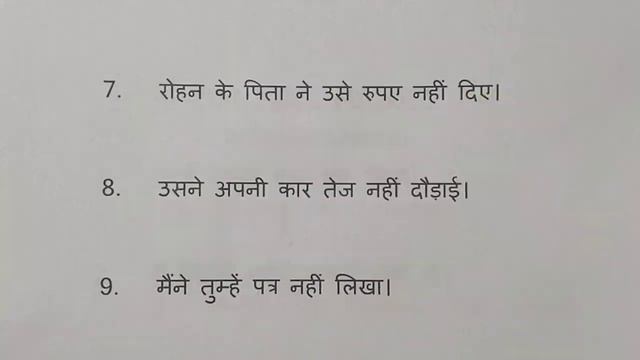 7. रोहन के पिता ने उसे रुपए नहीं दिए।
8. उसने अपनी कार तेज नहीं दौड़ाई।
9. मैंने तुम्हें पत्र नहीं लिखा।